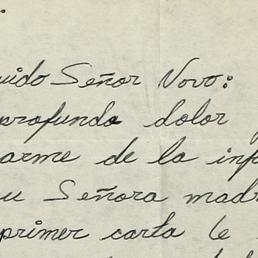 uido Señor Novo:
profundo dolor
arme de la inf
u Señora madr
primer carta le